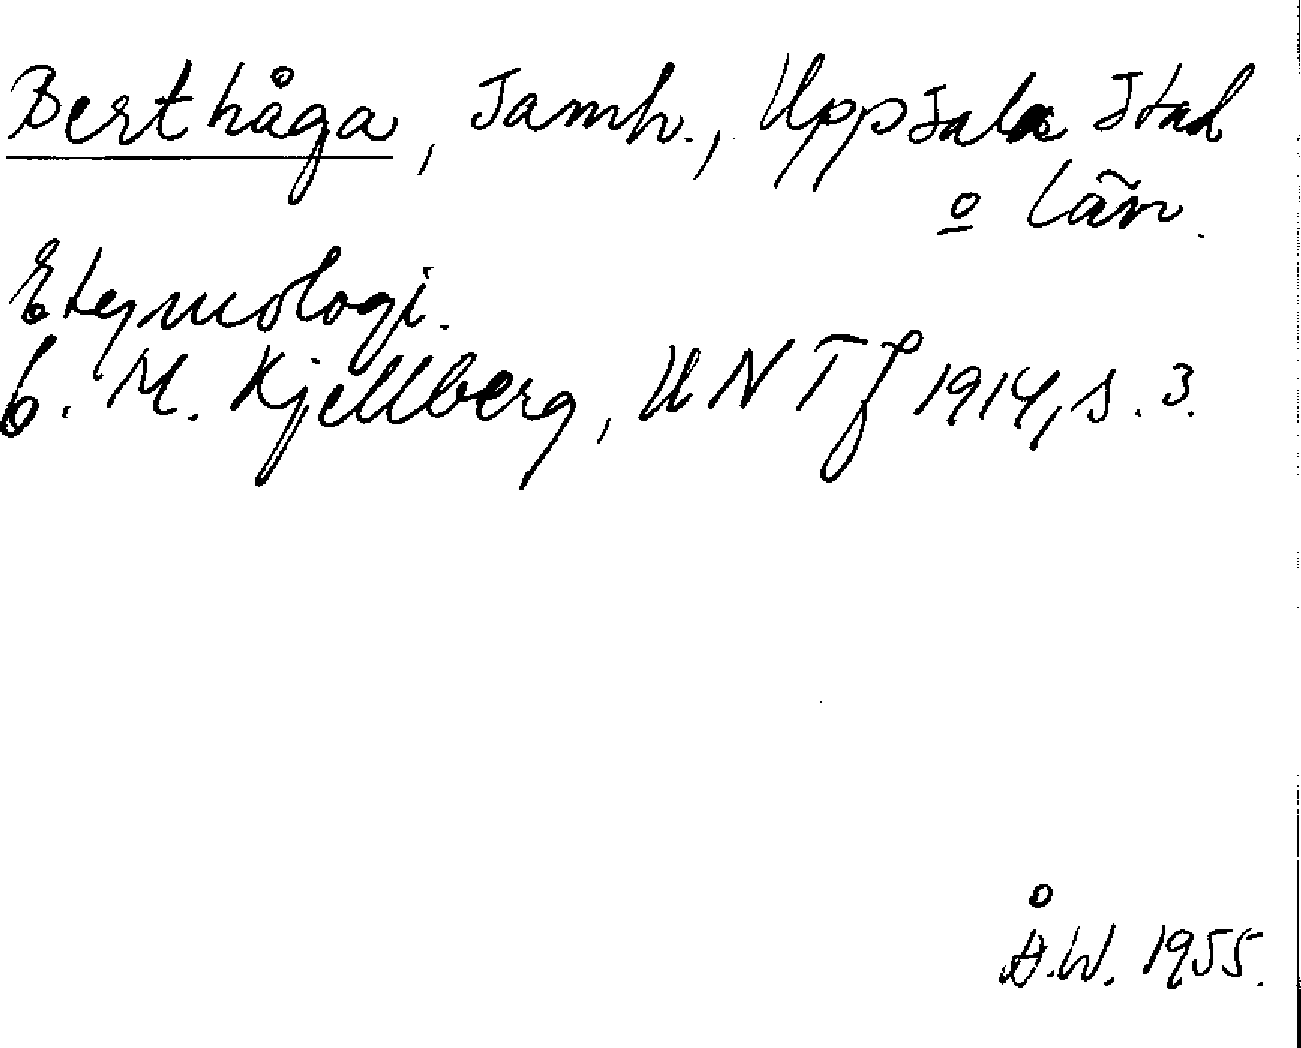 Berthåga, samh., Uppsala stad
o län.
Etymologi.
C. M. Kjellberg, UNT J 1914, s. 3.
Å.W. 1955.